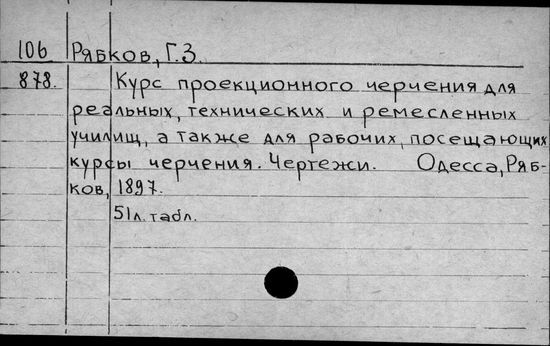 106 Рябков, Г.З.
878. Курс проекционного черчения для
реальных, технических и ремесленных
училищ, а также для рабочих, посещающих
курсы черчения. Чертежи. Одесса, Ряб-
ков, 1897.
51л. табл.